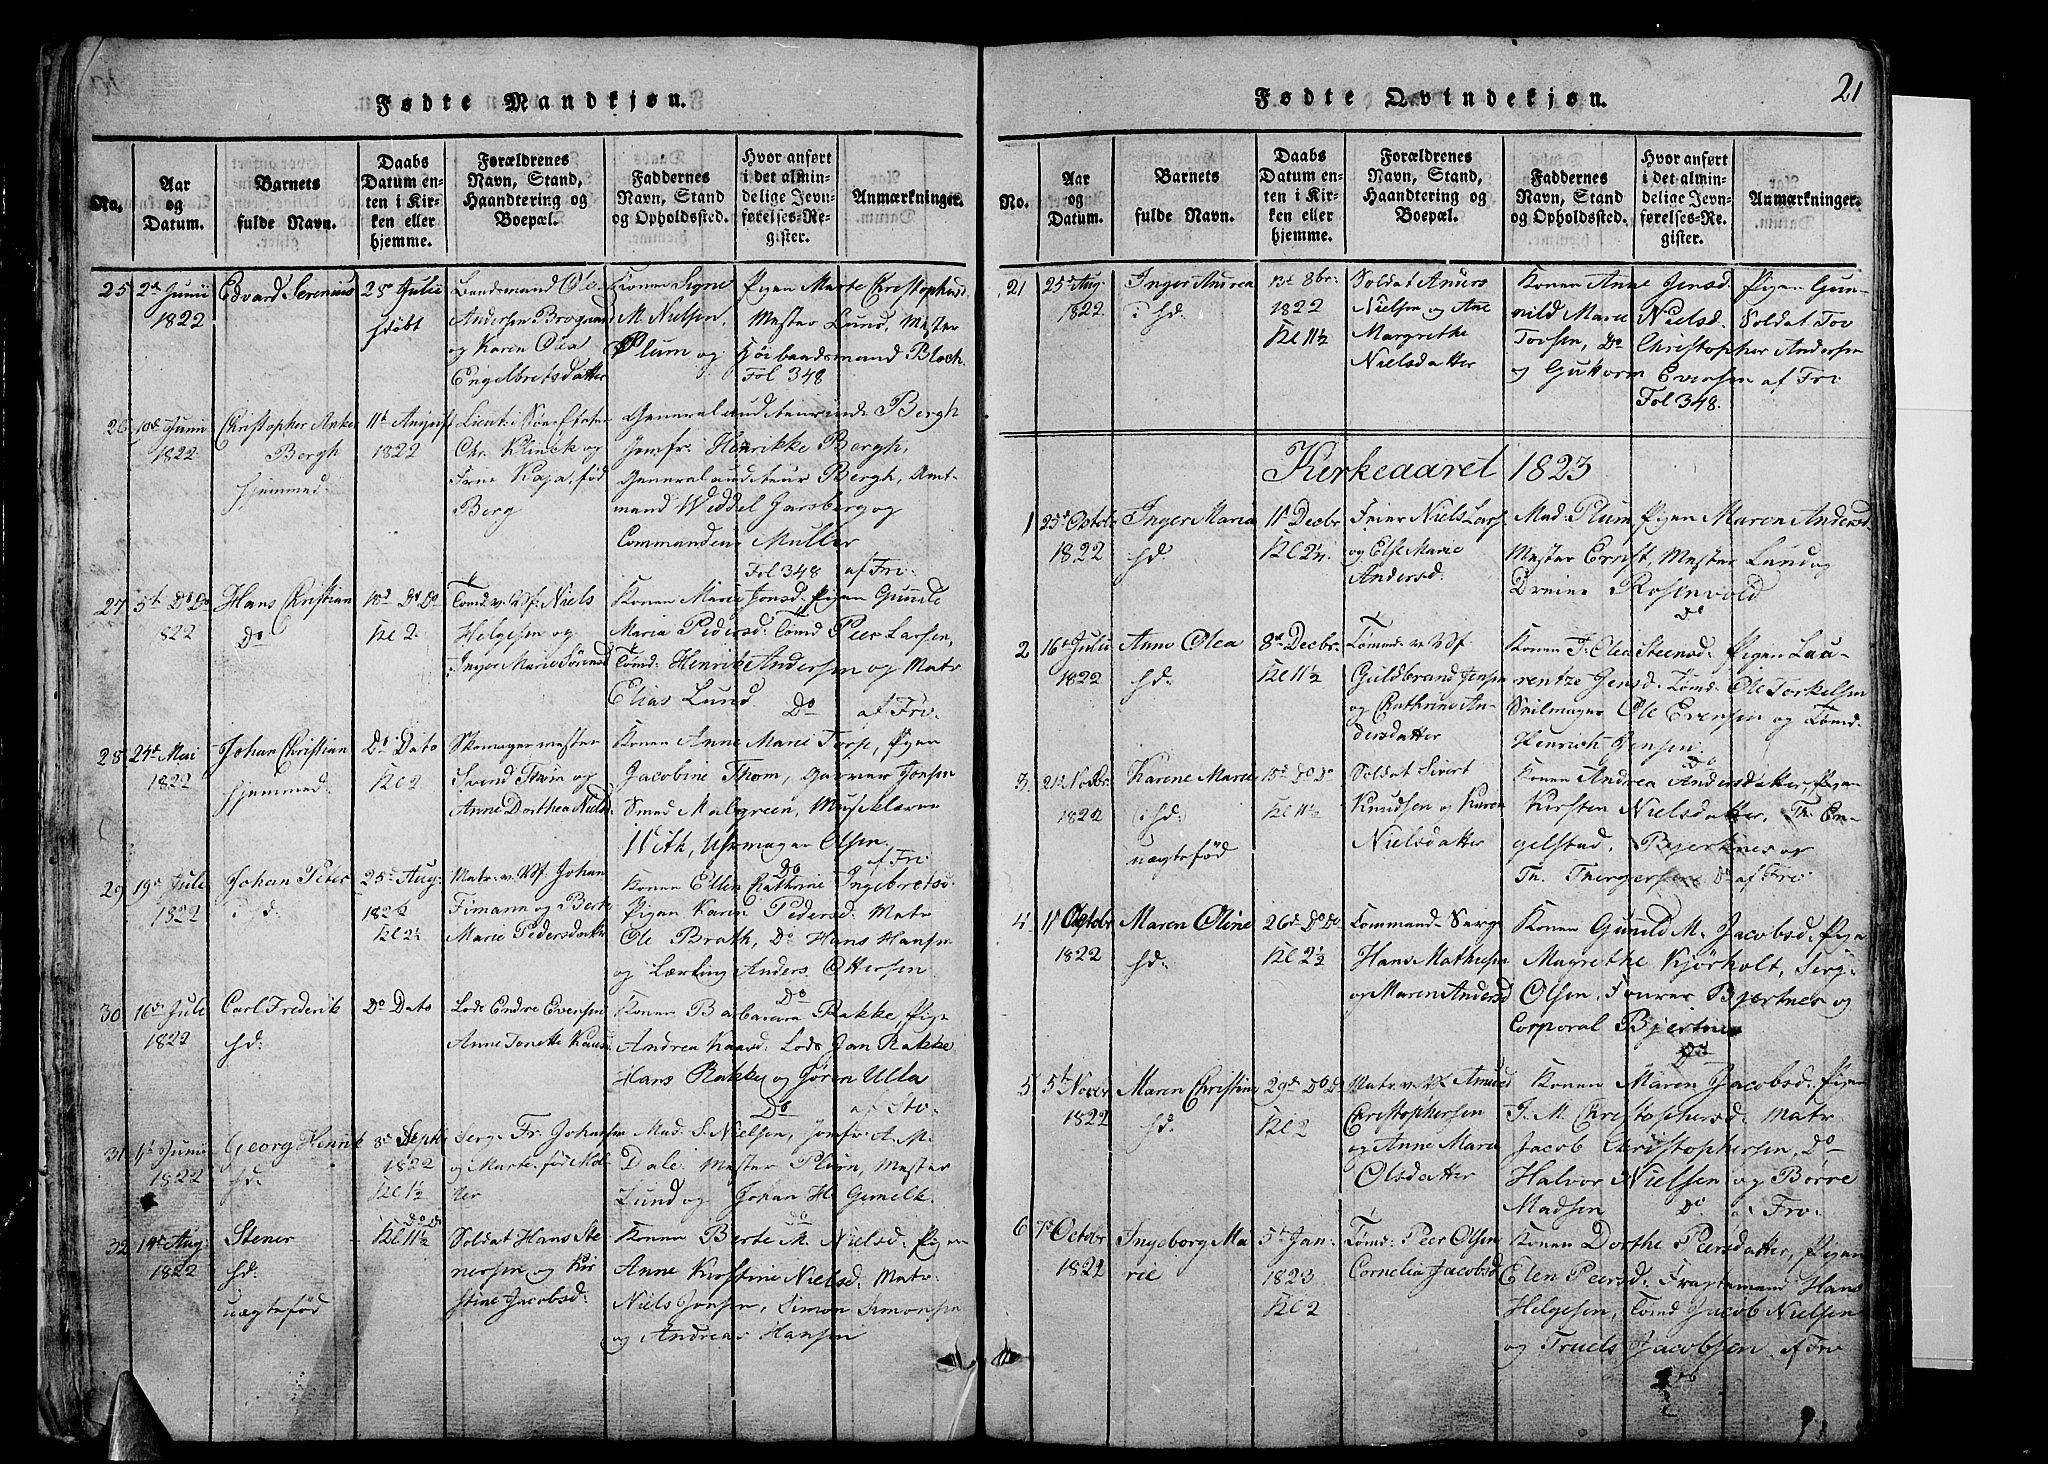 Fødte Mandkjøn.
No.
Aar
og
Datum.
Barnets
fulde Navn.
Daabs
Datum en-
ten i Kir-
ken eller
hjemme.
Forældrenes
Navn, Stand,
Haandtering og
Boepæl.
Faddernes
Navn, Stand
og Opholdssted.
Hvor anført
i det almin-
delige Jevn-
førelses-Re-
gister.
Anmærkninger.
25
2de Junii
1822
Edvard Serenius
28de Julii
hdøbt
Landsmand Ole
Andersen Brogaard
og Karen Olea
Engelbretsdatter
Konen Signe Pigen Marte Christophersd.
M. Nielsen, Mester Lund, Mester
Plum og Høibaadsmand Bloch.
Fol 348
26
Junii
1822
Christopher Anker
Bergh
hjemmed:
11te August
1822
Lieut: i Søe Etaten
Chr. Klinck og
Frue Kaja, fød
Berg
Generalauditeurinde Bergh
Jomfr: Henrikke Bergh,
Generalauditeur Bergh, Amt-
mand Weddel Jarlsberg og
Commandeur Muller
Fol 348 af Frv.
27
5te Do Do
822
Hans Christian
Do
18d Do Do
Kl 2.
Tømd. v. Vf. Niels
Helgesen og
Inger Marie Sørensd
Konen Marie Jonsd: Pigen Gunnild
Maria Pedersd: Tømd Peer Larsen,
Tømd: Henrik Andersen og Matr
Elias Lund Do af Frv.
28
24de Mai
1822
Johan Christian
hjemmed:
Do Dato
Kl 2
Skomagermester
Svend Thvin og
Anne Dorthea Nielsd:
Konen Anne Marie Torp, Pigen
Jacobine Thom, Garver Jonsen
Smed Malgreen,
With, Uhrmager Olsen
Do af Frv
29
19de Juli
1822
Johan Peter
i hd:
25de Aug:
1822
Kl 2½
Matr. v. Vf. Johan
Fimann og Berte
Marie Pedersdatter
Konen Ellen Kathrine Ingebretsd.
Pigen Karen Pedersd: Matr
Ole Brath, Do Hans Hansen
og Lærling Anders Ottersen
Do
30
16de Juli
1822
Carl Frederik
hd:
Do Dato
Lods Endre Evensen
Anne Tonette Kaasd.
Konen Barbara Rakke, Pige
Andrea Kaasd: Lods Jan Rakke
Hans Rakke og Søren Ulla
Do af Stv.
31
1te Junii
1822
Georg Henrik
hd:
8de Septbr
1822
Kl 1½
Serg: Fr. Johansen
og Marte, fød Mol-
ler
Mad: S. Nielsen, Jomfr: A. M.
Dale. Mester Plum, Mester
Lund og Johan H. Gimelk.
Do
32
14de Aug
1822
Stener
hd:
uægtefød
Do Do
Kl 11½
Soldat Hans Ste-
nersen og Kir-
stine Jacobsd:
Konen Berte M. Nielsd: Pigen
Anne Kirstine Nielsd: Matr.
Niels Jonsen, Simon Simonsen
og Andreas Hansen
21
Fødte Qvindekjøn.
No.
Aar
og
Datum.
Barnets
fulde Navn.
Daabs
Datum en-
ten i Kir-
ken eller
hjemme.
Forældrenes
Navn, Stand,
Haandtering og
Boepæl.
Faddernes
Navn, Stand
og Opholdssted.
Hvor anført
i det almin-
delige Jevn-
førelses-Re-
gister.
Anmærkninger.
21
25de Aug.
1822
Inger Andrea
i hd:
13de 8br.
1822
Kl 11½
Soldat Anders
Nielsen og Ane
Margrethe
Nielsdatter
Konen Anne Jensd: Pigen Gun-
nild Marie Nielsd. Soldat Tov
Tovsen, Do Christopher Andersen
og Guttorm Evensen af Frv.
Fol 348.
Kirkeaaret 1823
1
25de Octobr
1822
Inger Maria
hd:
1ste Decbr.
Kl 2¼.
Feier Niels Lars.
og Else Marie
Andersd:
Mad: Plum, Pigen Maren Andersd
Mester Ernst, Mester Lund og
Dreier Rosenvold
Do
2
16de Julii
1822
Anne Olea
hd:
8de Decbr.
Kl 11½
Tømd. v. Vf
Guldbrand Jensen
og Cathrine An-
dersdatter
Konen J. Olea Steensd: Pigen Lau-
rentze Jensd: Tømd: Ole Torkelsen
Seilmager Ole Evensen og Tømd:
Henrich Jensen
Do
3
21de Novbr.
1822
Karene Marie
i hd:
uægtefød
15de Do Do
Kl 11½
Soldat Sivert
Knudsen og Karen
Nielsdatter
Konen Andrea Andersdatter, Pigen
Kirsten Nielsdatter, Th. En-
gelstad, Bjerknes og
Th. Thergersen Do af Frv.
4
1ste Octobr
1822
Maren Oline
hd:
26de Do Do
Kl 2½
Command: Serg.
Hans Mathesen
og Maren Andersd
Konen Gunild M. Jacobsd: Pige
Magrethe Kjørholt, Serg:
Olsen, Fourer Bjertnes og
Corporal Bjertnes
Do
5
5te Novbr
1822
Maren Christine
hd:
29de Do Do
Kl 2
Matr. v. Vf Amund
Christophersen
og Anne Marie
Olsdatter
Konen Maren Jacobsd: Pigen
J. M. Christophersd: Matr
Jacob Christophersen, Do
Halvor Nielsen og Børre
Madsen Do af Frv
6
7de Octobr
1822
Ingeborg Ma
rie
5te Jan:
1823
Kl 2
Tømd: Peer Olsen
Cornelia Jacobsd
Konen Dorthe Peersdatter, Pigen
Elen Peersd: Fragtemand Hans
Helgesen, Tømd Jacob Nielsen
og Truels Jacobsen. af Frv